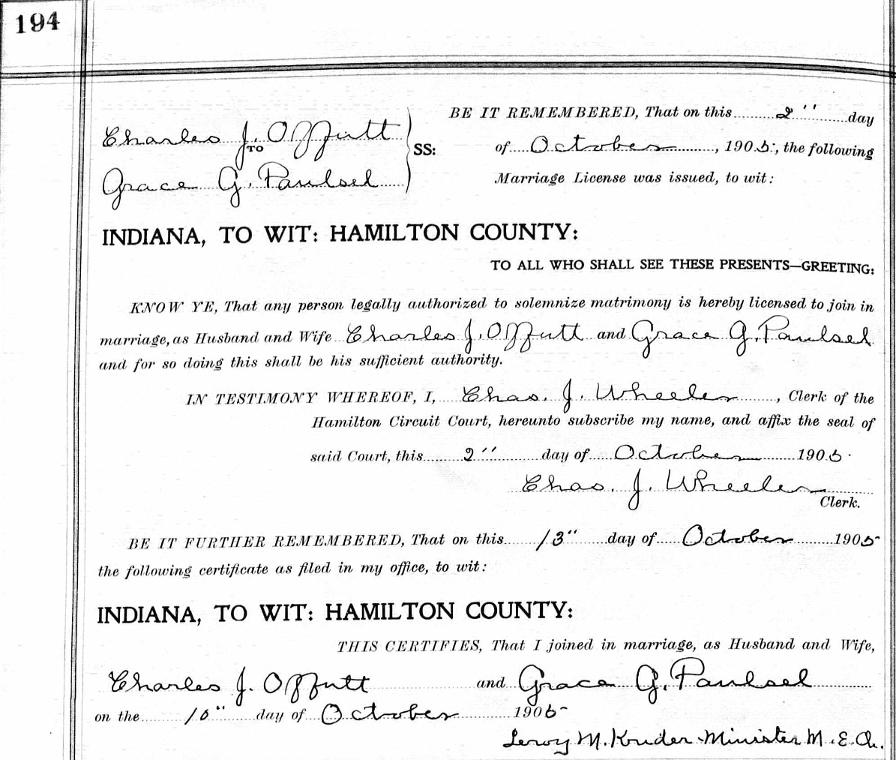 194
BE IT REMEMBERED, That on this 2" day
Charles J. Offutt
TO
SS:
of October, 1905, the following
Grace G. Paulsel
Marriage License was issued, to wit:
INDIANA, TO WIT: HAMILTON COUNTY:
TO ALL WHO SHALL SEE THESE PRESENTS—GREETING:
KNOW YE, That any person legally authorized to solemnize matrimony is hereby licensed to join in
marriage, as Husband and Wife Charles J. Offutt and Grace G. Paulsel
and for so doing this shall be his sufficient authority.
IN TESTIMONY WHEREOF, I, Chas. J. Wheeler, Clerk of the
Hamilton Circuit Court, hereunto subscribe my name, and affix the seal of
said Court, this 2" day of October 1905.
Chas. J. Wheeler
Clerk.
BE IT FURTHER REMEMBERED, That on this 13" day of October 1905
the following certificate as filed in my office, to wit:
INDIANA, TO WIT: HAMILTON COUNTY:
THIS CERTIFIES, That I joined in marriage, as Husband and Wife,
Charles J. Offutt and Grace G. Paulsel
on the 10" day of October 1905
Leroy M. Kruder Minister M. E. Ch.